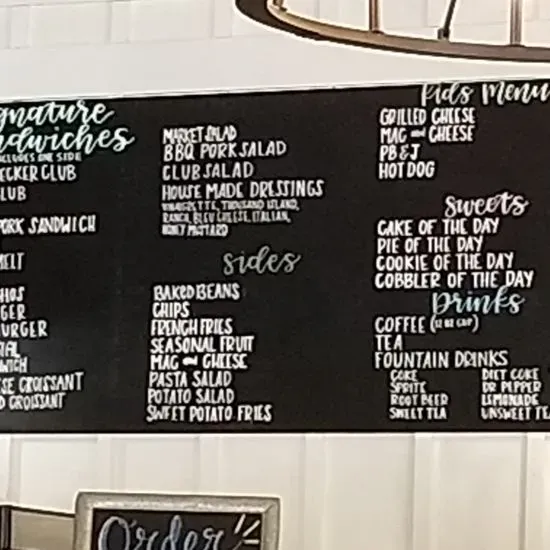 gnature
ndwiches
INCLUDES ONE SIDE
ECKER CLUB
LUB
PORK SANDWICH
MELT
HOS
GER
URGER
IAL
WICH
SE CROISSANT
D CROISSANT
MARKET SALAD
BBQ PORK SALAD
CLUB SALAD
HOUSE MADE DRESSINGS
VINAIGRETTE, THOUSAND ISLAND,
RANCH, BLEU CHEESE, ITALIAN,
HONEY MUSTARD
sides
BAKED BEANS
CHIPS
FRENCH FRIES
SEASONAL FRUIT
MAC and CHEESE
PASTA SALAD
POTATO SALAD
SWEET POTATO FRIES
Kids Menu
GRILLED CHEESE
MAC and CHEESE
PB & J
HOT DOG
Sweets
CAKE OF THE DAY
PIE OF THE DAY
COOKIE OF THE DAY
COBBLER OF THE DAY
Drinks
COFFEE (12 OZ CUP)
TEA
FOUNTAIN DRINKS
COKE
SPRITE
ROOT BEER
SWEET TEA
DIET COKE
DR PEPPER
LEMONADE
UNSWEET TE
Order